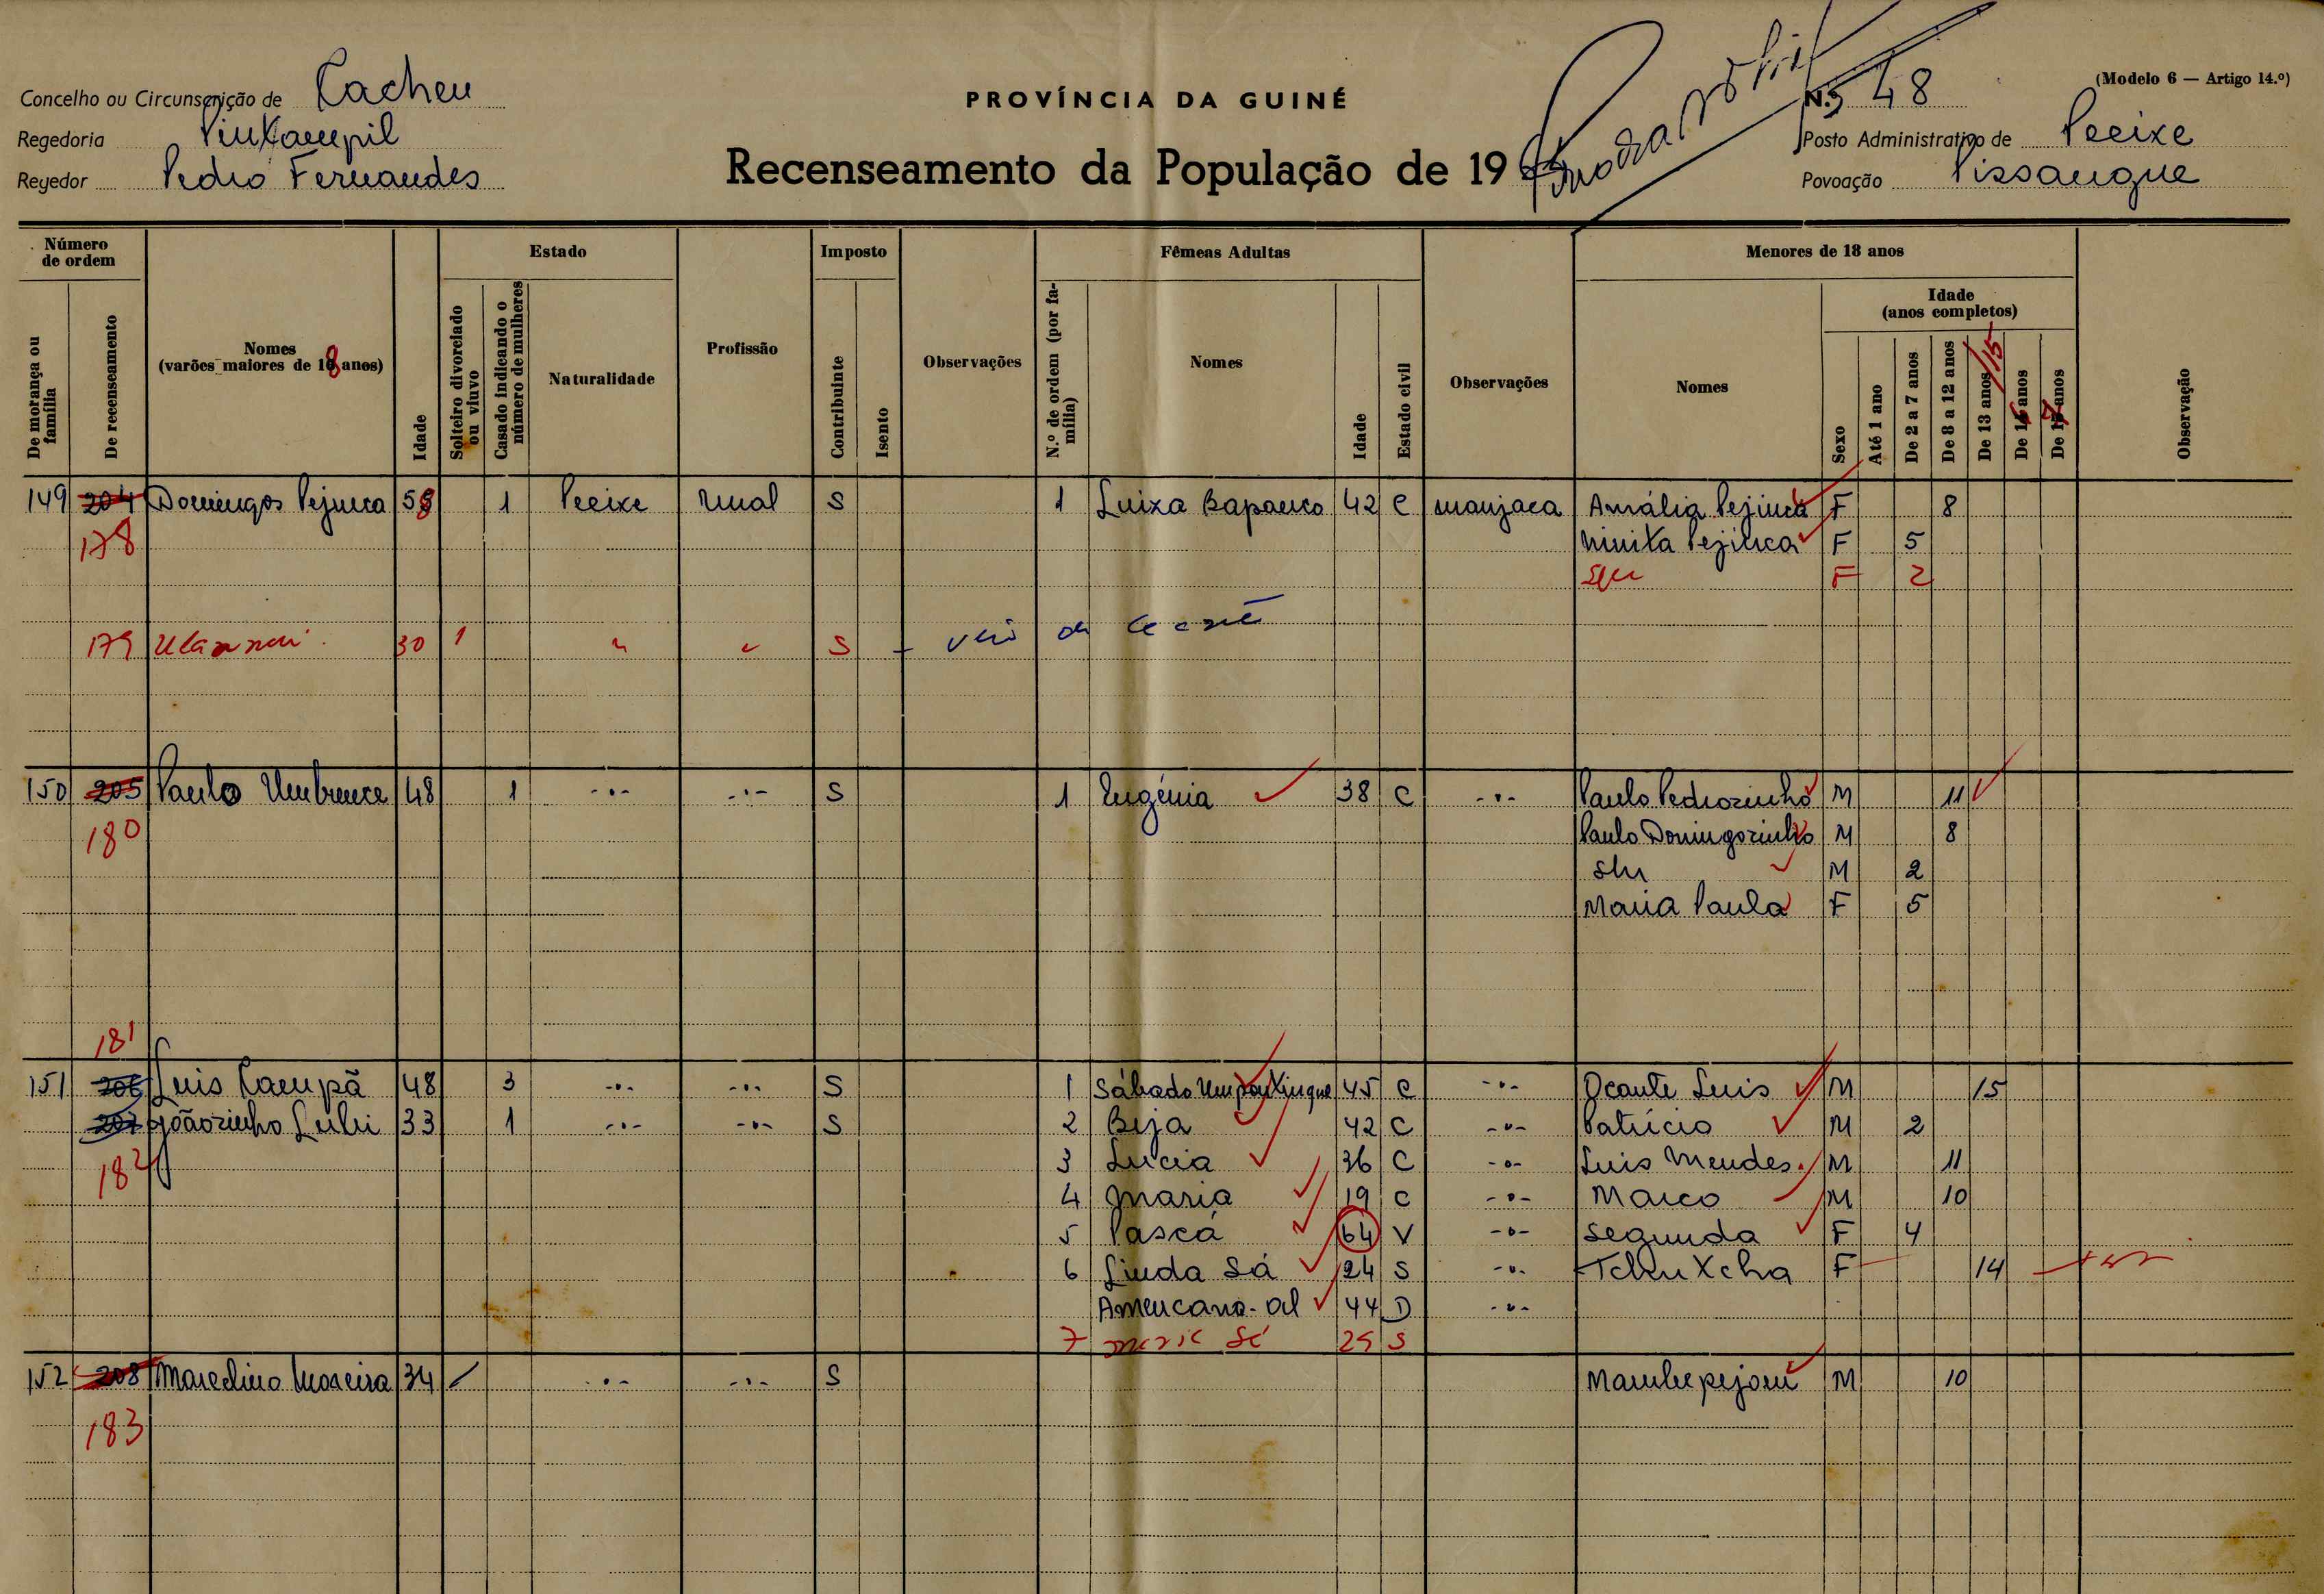 Concelho ou Circunscrição de Cacheu
PROVÍNCIA DA GUINÉ
N.º 48
(Modelo 6 — Artigo 14.º)
Regedoria
Posto Administrativo de Pecixe
Regedor Pedro Fernandes
Recenseamento da População de 19
Povoação Pissangue
Número de ordem
De morança ou família
De recenseamento
Nomes (varões maiores de 18 anos)
Idade
Estado
Solteiro divorciado ou viuvo
Casado indicando o número de mulheres
Naturalidade
Profissão
Imposto
Contribuinte
Isento
Observações
Fêmeas Adultas
N.º de ordem (por família)
Nomes
Idade
Estado civil
Observações
Menores de 18 anos
Nomes
Idade (anos completos)
Sexo
Até 1 ano
De 2 a 7 anos
De 8 a 12 anos
De 13 anos /15
De 16 anos
De 17 anos
Observação
149 204 Domingos Pejuca 58 1 Pecixe rural S 1 Luiza 42 C manjaca Amália F 8
178 F 5
F 2
179 30 1 " " S - veio de
150 205 Paulo 48 1 -"- -"- S 1 Eugénia 38 C -"- Paulo Pedrozinho M 11
180 Paulo Domingozinho M 8
M 2
Maria Paula F 5
181
151 206 Luis Campã 48 3 -"- -"- S 1 Sábado 45 C -"- Ocante Luis M 15
207 Joãozinho 33 1 -"- -"- S 2 Beja 42 C -"- Patrício M 2
182 3 Lucia 36 C -"- Luis Mendes M 11
4 Maria 19 C -"- Marco M 10
5 Pascá 64 V -"- Segunda F 4
6 Linda Sá 24 S -"- F 14
44 D -"-
7 Sá 25 S
152 208 Marcelino Moreira 34 / -"- -"- S M 10
183